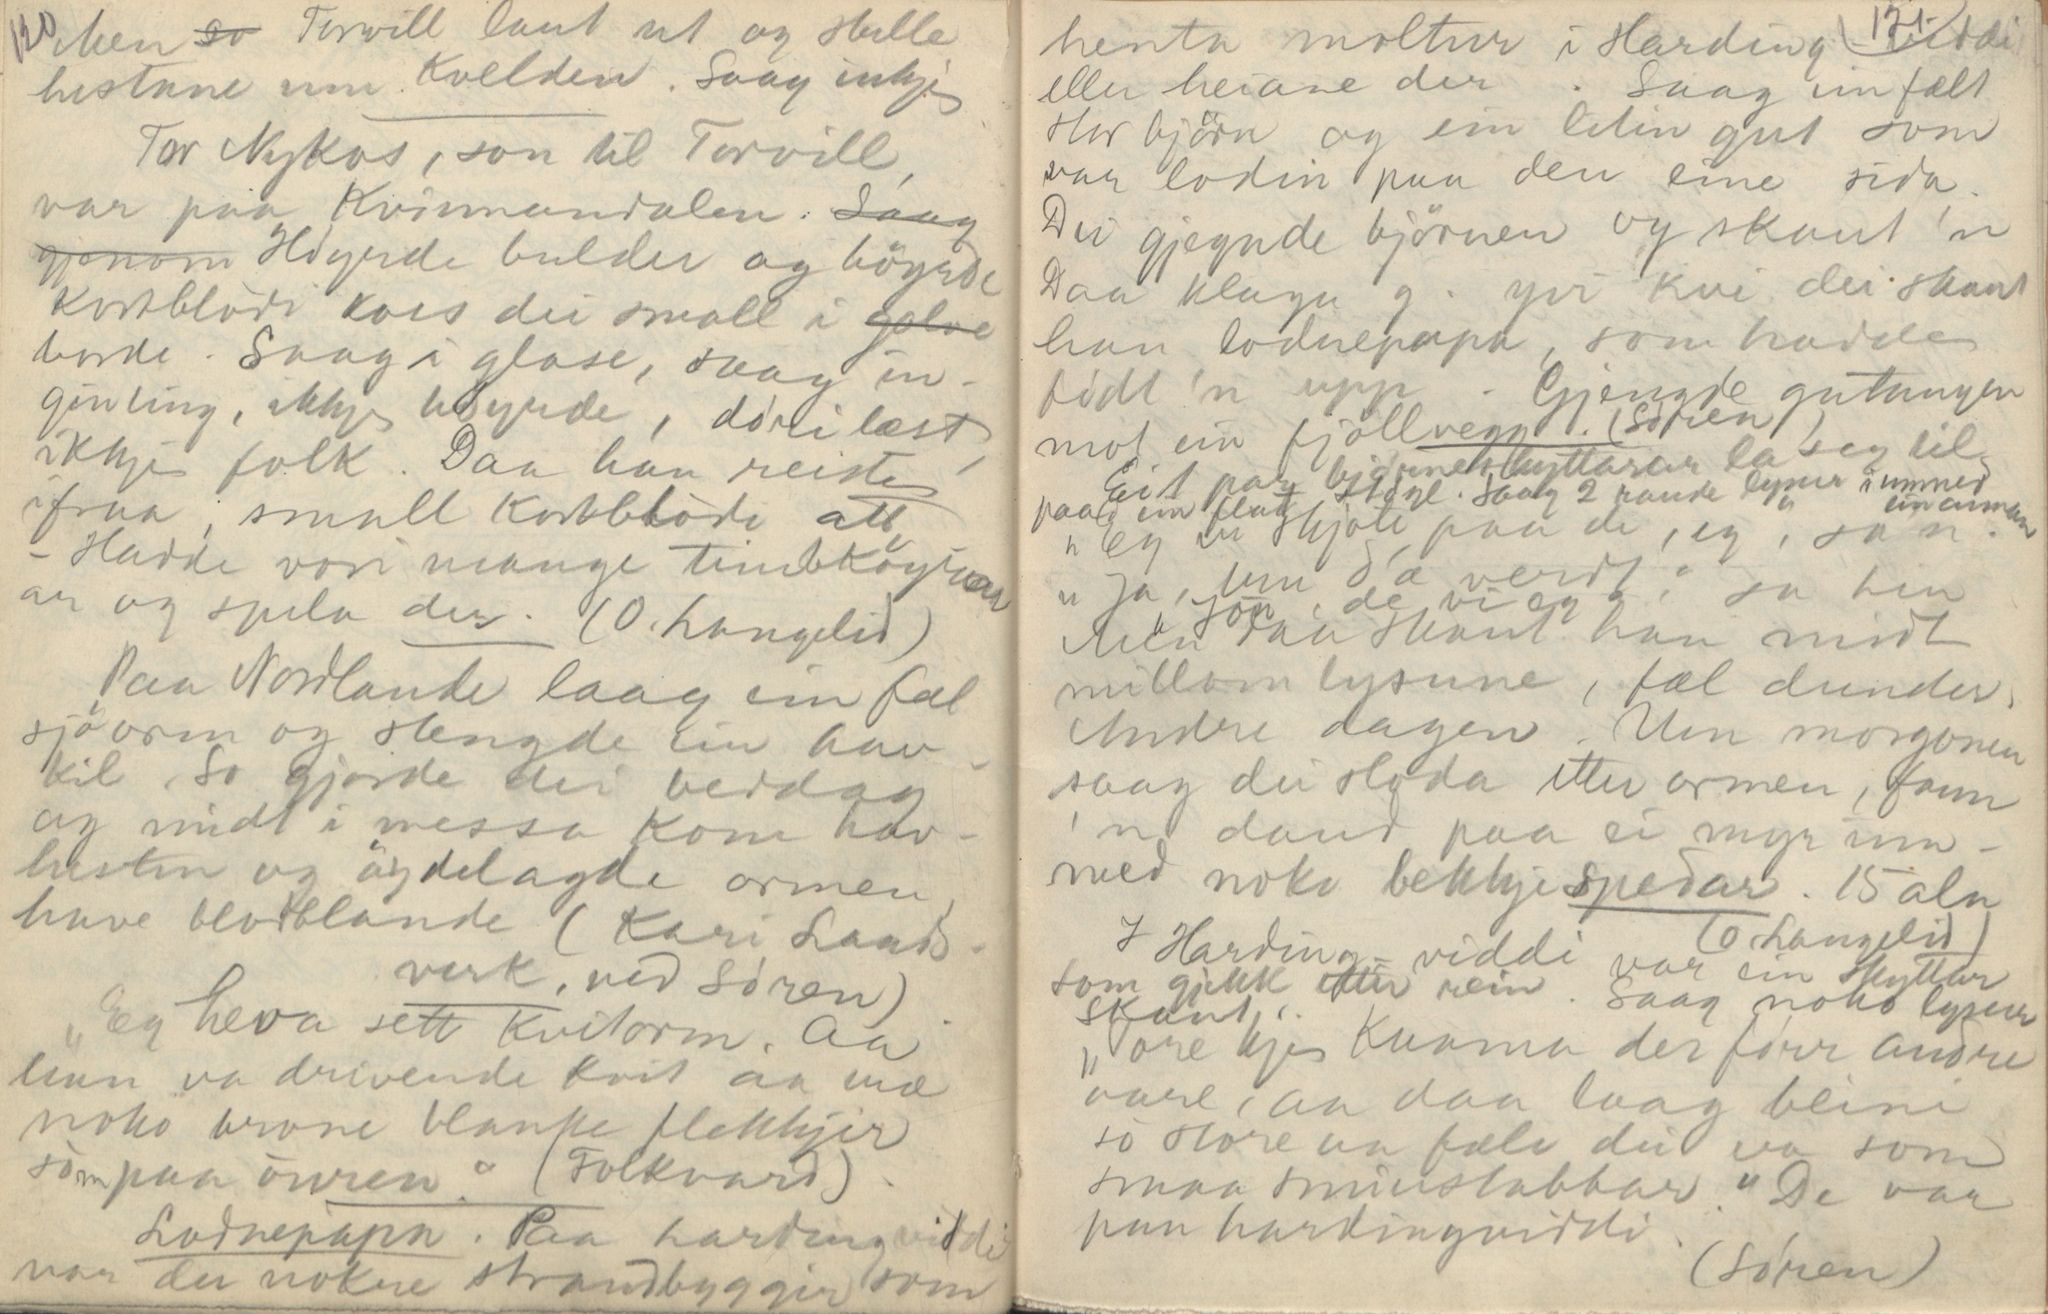 120
Men so Torvill laut ut og stelle
hestane um kvelden. Saag inkje
Tor Nykos, son til Torvill,
var paa Kvinnandalen. Saag
gjenom Höyrde bulder og höyrde
kortblödi kois dei small i golve
borde. Saag i glase, saag in-
ginting, ikkje höyrde, döri læst,
ikkje folk. Daa han reiste
ifraa, small kortblödi att
- Hadde vori mange timb
ar og spela der. (O. Langelid)
Paa Nordlande laag ein fæl
sjöorm og stengde ein hav-
kil So gjorde dei berdag
og midt i messa kom hav-
hesten og öydelagde ormen,
have blodblande (Kari Lands-
verk, ved Sören)
"Eg heva sett kvitorm. Aa
han va drivende kvit aa mæ
noko brone blanke flekkjir
som paa ören." (Folkvard).
Lodnepapa. Paa hardingviddi
var der nokre strandbyggjir som
121
henta moltur i Harding viddi
eller heiane der. Saag ein fælt
stor björn og ein liten gut som
var lodin paa den eine sida.
Dei gjegnde björnen og skaut 'n
Daa klaga g. yvi kvi dei skaut
han lodnepapa, som hadde
födt 'n upp. Gjengde gutungen
mot ein fjöllvegg. (Sören)
Eit par björneskyttarar la seg til
paa ein flaat stögl. Saag 2 runde lysur innmed
einannan
"Eg vi skjote paa de, eg, sa 'n.
"Ja, um d'æ verdt" sa hin
"Jöu, de vi eg"
Men daa skaut han midt
millom lysune, fæl dunder,
Andre dagen. Um morgonen
saag dei sloda etter ormen, fann
'n daud paa ei myr inn-
med noko bekkjespedar. 15 aln
(O Langelid)
I Harding-viddi var ein skyttar
som gjekk etter rein. Saag noko lysur
Skaut,
"Tore kje kuama der förr andre
aare, aa daa laag beini
so store aa fæle dei va som
smaa smiustabbar." De var
paa hardingviddi.
(Sören)